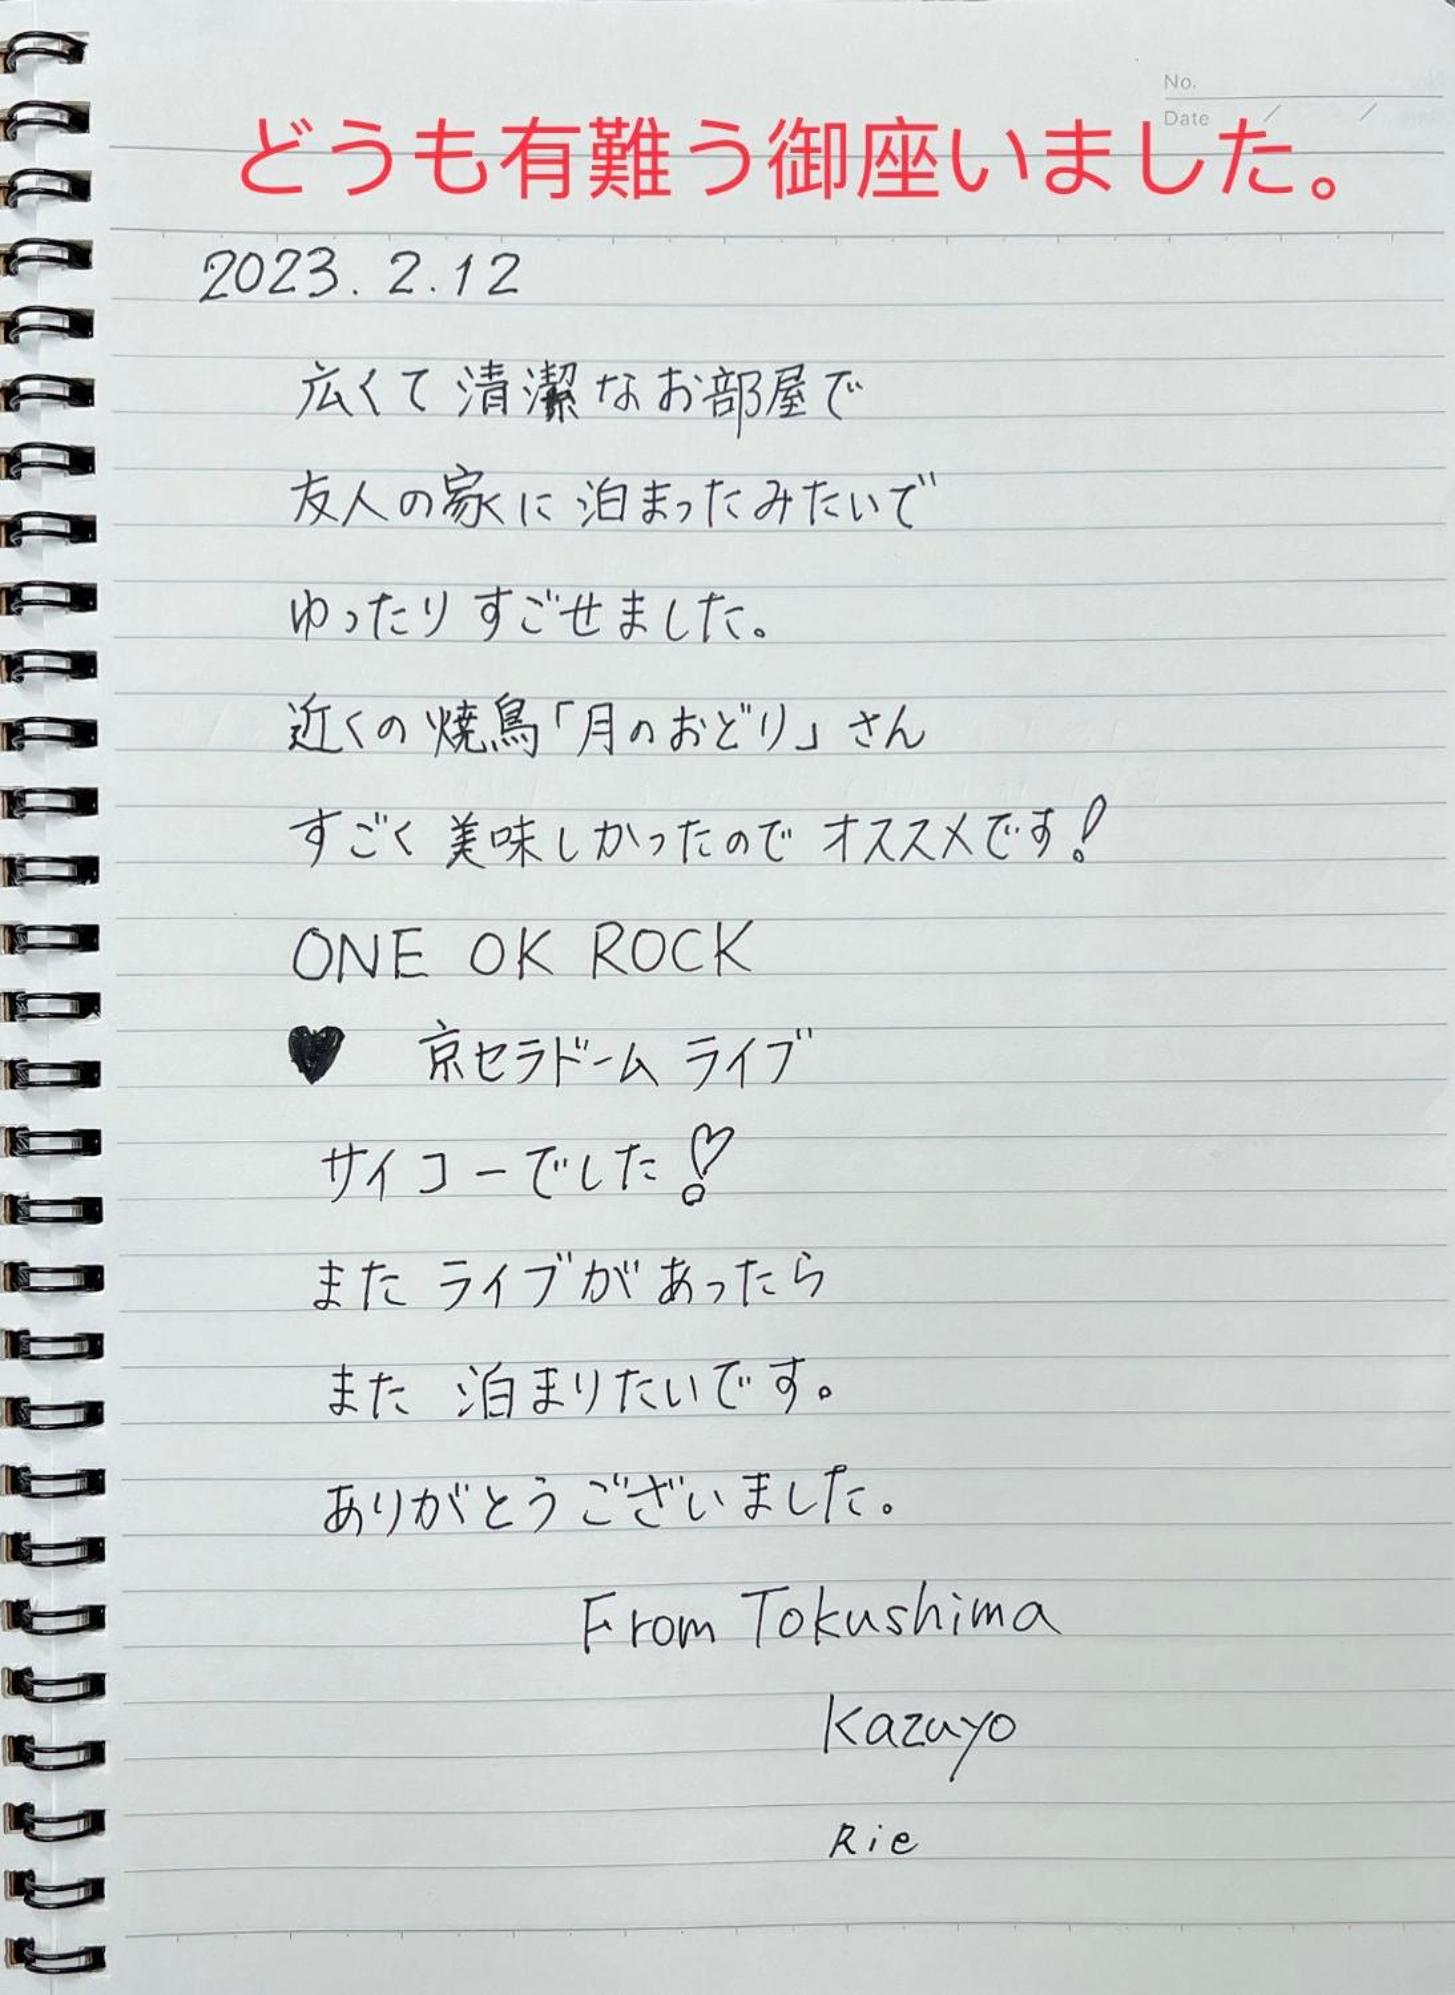 No.
Date / /
どうも有難う御座いました。
2023.2.12
広くて清潔なお部屋で
友人の家に泊まったみたいで
ゆったりすごせました。
近くの焼鳥「月のおどり」さん
すごく美味しかったのでオススメです!
ONE OK ROCK
♥ 京セラドームライブ
サイコーでした!
またライブがあったら
また泊まりたいです。
ありがとうございました。
From Tokushima
Kazuyo
Rie